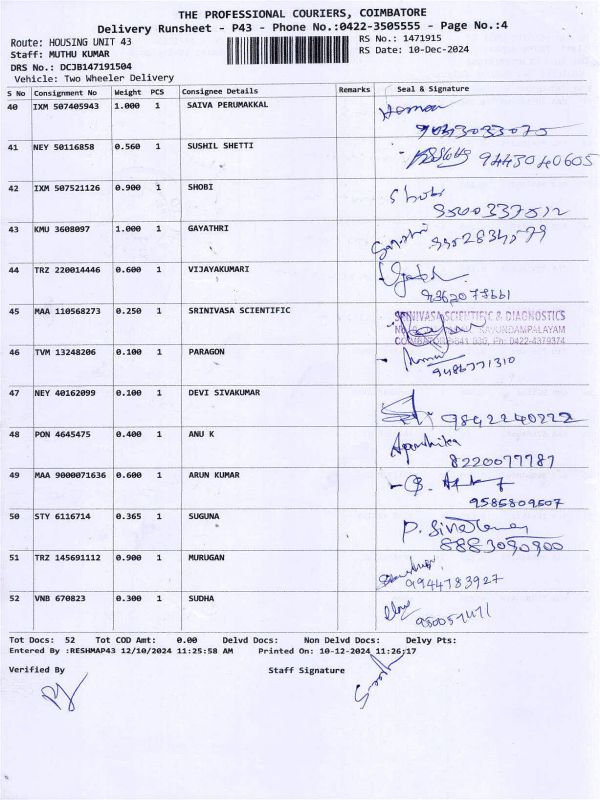 THE PROFESSIONAL COURIERS, COIMBATORE
Delivery Runsheet - P43 - Phone No.:0422-3505555 - Page No.:4
Route: HOUSING UNIT 43
RS No.: 1471915
Staff: MUTHU KUMAR
RS Date: 10-Dec-2024
DRS No.: DCJB147191504
Vehicle: Two Wheeler Delivery
S No Consignment No Weight PCS Consignee Details Remarks Seal & Signature
40 IXM 507405943 1.000 1 SAIVA PERUMAKKAL
9043033075
41 NEY 50116858 0.560 1 SUSHIL SHETTI
9443040605
42 IXM 507521126 0.900 1 SHOBI Shobi
9500337512
43 KMU 3608097 1.000 1 GAYATHRI Gayathri
44 TRZ 220014446 0.600 1 VIJAYAKUMARI
45 MAA 110568273 0.250 1 SRINIVASA SCIENTIFIC SRINIVASA SCIENTIFIC & DIAGNOSTICS
KAVUNDAMPALAYAM
COIMBATORE-641 030, Ph: 0422-4379374
46 TVM 13248206 0.100 1 PARAGON
9486771310
47 NEY 40162099 0.100 1 DEVI SIVAKUMAR
9842240222
48 PON 4645475 0.400 1 ANU K
8220077787
49 MAA 9000071636 0.600 1 ARUN KUMAR
9585809507
50 STY 6116714 0.365 1 SUGUNA
8883090900
51 TRZ 145691112 0.900 1 MURUGAN
9944783927
52 VNB 670823 0.300 1 SUDHA
Tot Docs: 52 Tot COD Amt: 0.00 Delvd Docs: Non Delvd Docs: Delvy Pts:
Entered By :RESHMAP43 12/10/2024 11:25:58 AM Printed On: 10-12-2024 11:26:17
Verified By Staff Signature